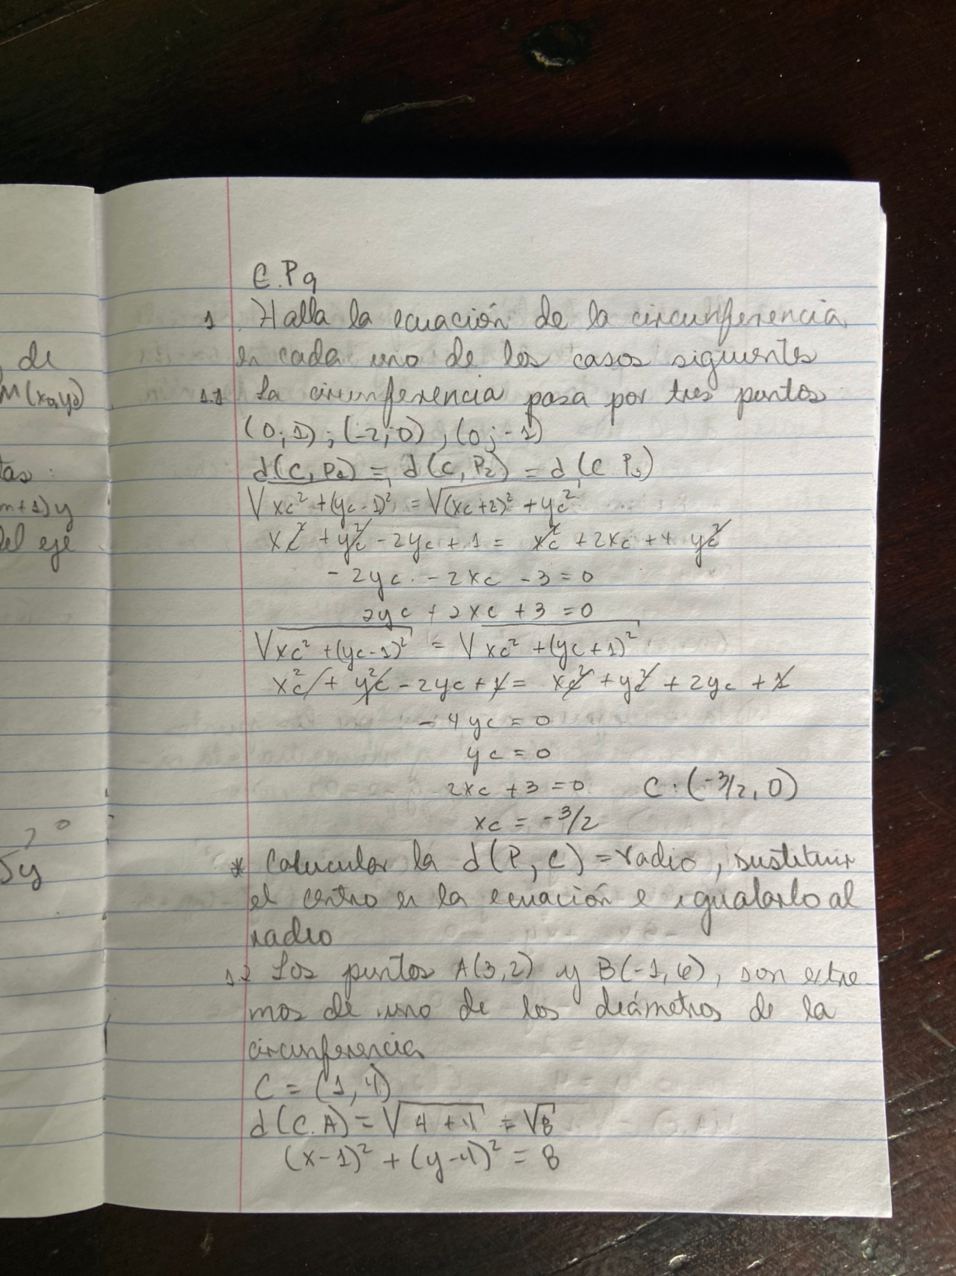 de
M(x0,y0)
tas:
m+1)y
del eje
5y
C.P9
1. Halla la ecuación de la circunferencia
en cada uno de los casos siguientes
1.1 La circunferencia pasa por tres puntos
(0;1);(-2;0),(0;-1)
d(C,P1) = d(C,P2) = d(C P3)
√xc² + (yc-1)² = √(xc+2)² + yc²
xc² + yc² - 2yc + 1 = xc² + 2xc + 4 yc²
-2yc - 2xc - 3 = 0
2yc + 2xc + 3 = 0
√xc² + (yc-1)² = √xc² + (yc+1)²
xc² + yc² - 2yc + 1 = xc² + yc² + 2yc + 1
-4yc = 0
yc = 0
2xc + 3 = 0 C:(-3/2, 0)
xc = -3/2
* Calcular la d(P, C) = radio, sustituir
el centro en la ecuación e igualarlo al
radio
1.2 Los puntos A(3,2) y B(-1,6), son extre
mos de uno de los diámetros de la
circunferencia
C = (1,4)
d(C.A) = √4+4 = √8
(x-1)² + (y-4)² = 8